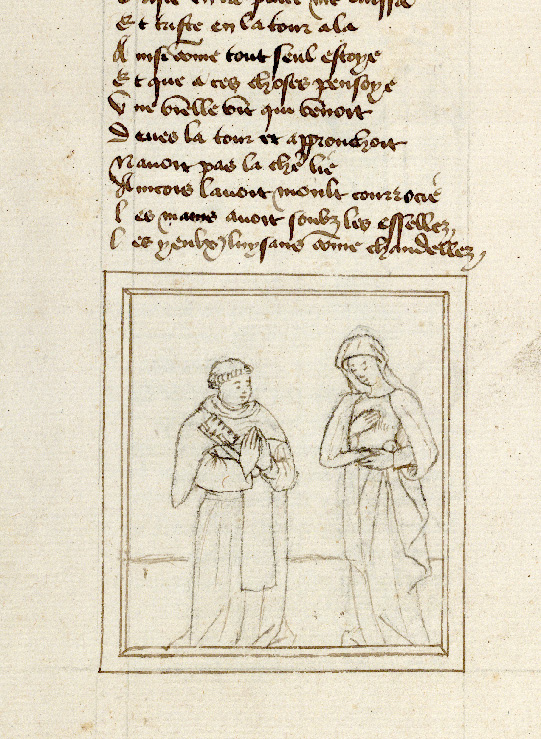 Et triste en la tour ala
Ainsi cōme tout seul estoye
Et que a ces choses pensoye
Une vielle vit qui venoit
Devers la tour et approuchoit
Navoit pas la chē lie
Aincois lavoit moult courrocie
Les mains avoit soubz les essellez,
Les yeulx luysans cōme chandellez,